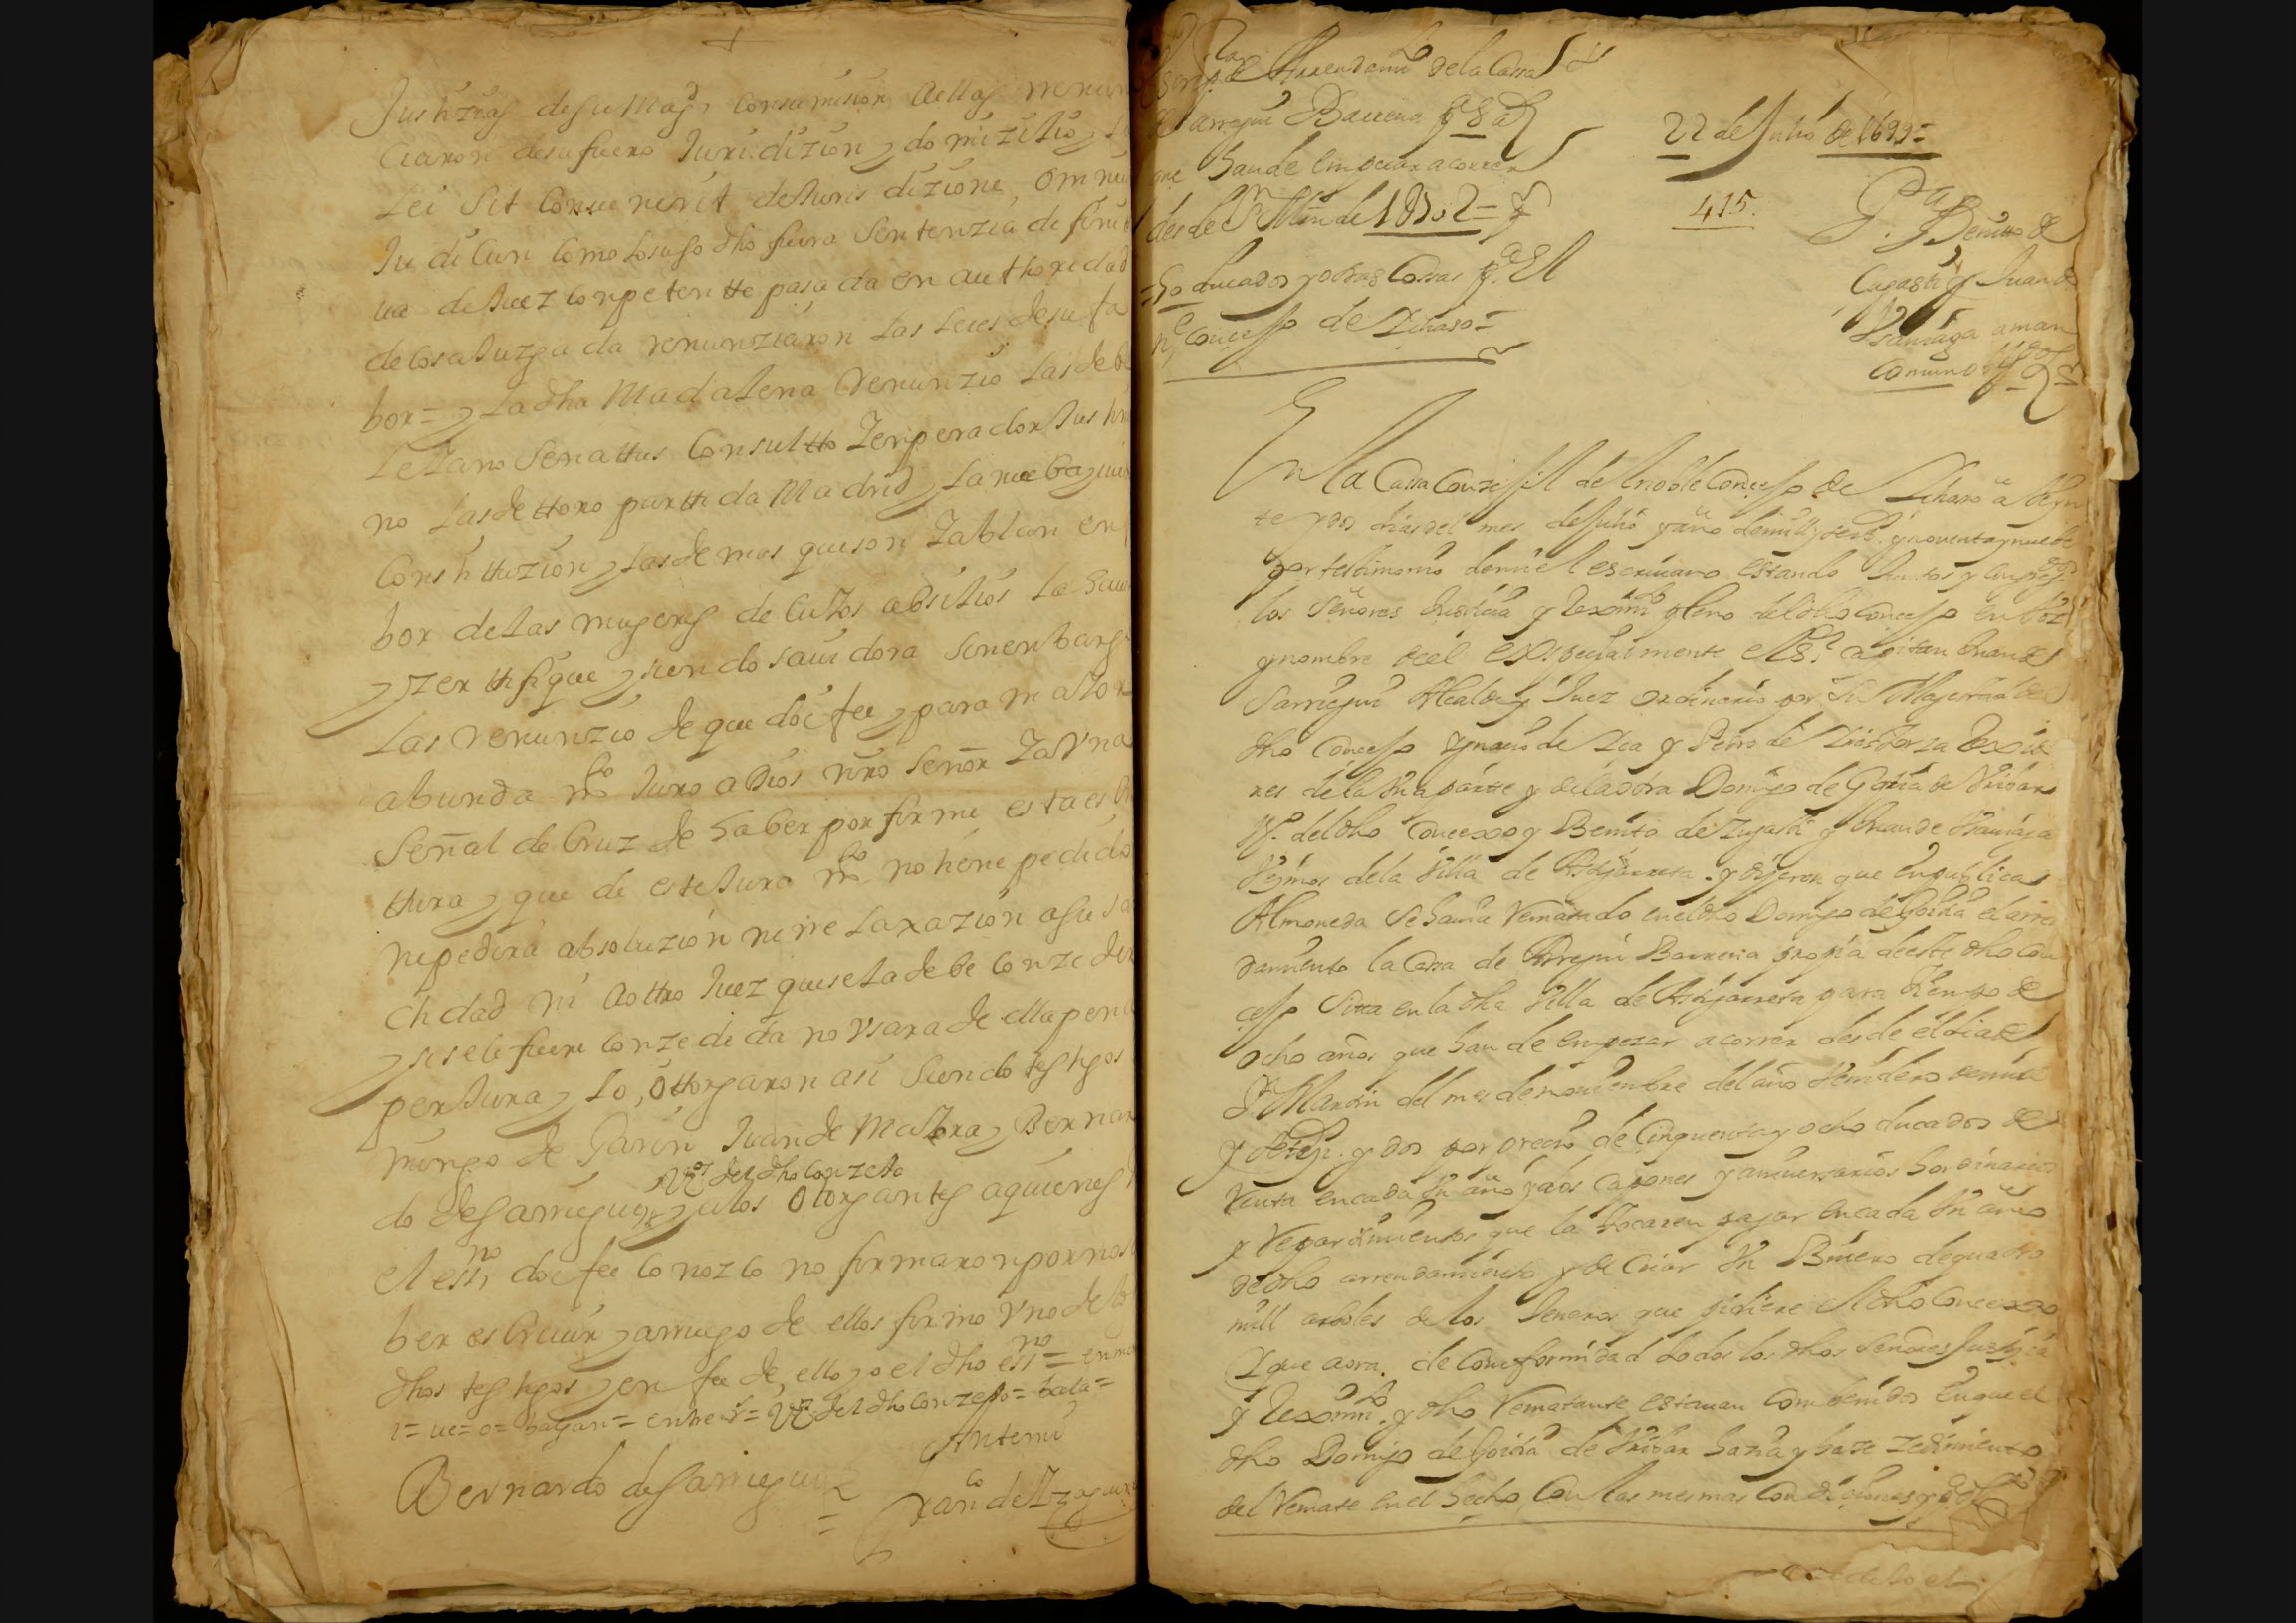 Justizias de su Magd, con sumision a ellas renun
ciaron de su fuero Juridizion y domizilio y la
Lei Sit Conbenerit de Juris dizione, omniu
Judicun como lo suso dho fuera Sentenzia definiti
ua de Juez conpetentte pasada en authoridad
de cosa Juzgada renunziaron las Leies de su fa
bor = y La dha Madalena renunzio las de be
leyano Senattus Consultto Zenperador Justini
no las de ttoro parttida Madrid y la nueba
Constituzion y las demas que son y ablan en fa
bor de las mugeres de cuios absilios la
y zerttifique y siendo sauidora sinenbargo
Las renunzio de que doi fee y para maior
abunda mto Juro a Dios nro Señor y a Vna
Señal de Cruz de haber por firme esta escri
ttura y que de este Jura mto no tiene pedido
ni pedira absoluzion ni rrelaxazion a su san
tidad ni a ottro Juez que se la debe conzeder
y si se le fuere conzedida no vsara de ella pena de
perJura y lo, ottorgaron asi siendo testigos
mingo de Garin Juan de y Bernar
do de Sarriegui vos del dho conzejo y a los otorgantes a quienes
el essno doi fee conozco no firmaron por no sa
ber escriuir y a rruego de ellos firmo vno de los
dhos testigos y en fee de ello yo el dho essno = enmdo
i = ue = o = hagan = entre Rs = vos del dho conzejo = bala =
Antemi
Bernardo de Sarriegui
= Franco de
Arrendamto de la Cassa
de Sarregui Barrena por 8 as
que han de empezar a correr
desde Sn Mrn de 1702 =
58 ducados y otras Cossas por El
ne Concejo de =
22 de Julio de 1699 =
415.
Pa
Benitto de
Cugasti y Juan de
aman
comun
En la Cassa Conzejil del noble Concejo de a Veyn
te y dos dias del mes de Julio y año de mill y seisos y noventa y nuebe
por testimonio de mi el escriuano estando Juntos y Congregdos
los Señores Justicia y Reximto pleno del dho Concejo en boz
y nombre de el especialmente el Sr Capitan Juan de
Sarriegui Alcalde y Juez ordinario por Su Magestad del
dho Concejo Ygnacio de y Pedro de Rexido
res de la Vna partte y de la otra Domingo de Goitia de Vribar
Vo del dho Concexo y Benito de Zugasti y Juan de
Vezinos de la Villa de Astigarreta. y dijeron que en publica
Almoneda se hauia Rematado en el dho Domingo de Goitia el arren
damiento la Cassa de Arregui Barrena propia de este dho Con
cejo Sitta en la dha Villa de Astigarreta para tiempo de
ocho años que han de empezar a correr desde el dia de
Sn Martin del mes de noviembre del año Venidero de mill
y setesos y dos por precio de Cinquenta y ocho ducados de
Renta en cada Vn año y dos Capones y aniversarios hordinarios
y Repartimientos que la tocaren pagar en cada Vn año
de dho arrendamiento y de Criar Vn Bivero de quatro
mill arboles de los Generos que pidiere el dho Concexo
Y que aora. de Conformidad todos los dhos Señores Justicia
y Reximto. y dho Rematante estauan Combenidos en que el
dho Domingo de Goitia de Vribar haria y haze Zedimiento
del Remate en el hecho, Con las mesmas Condiciones y